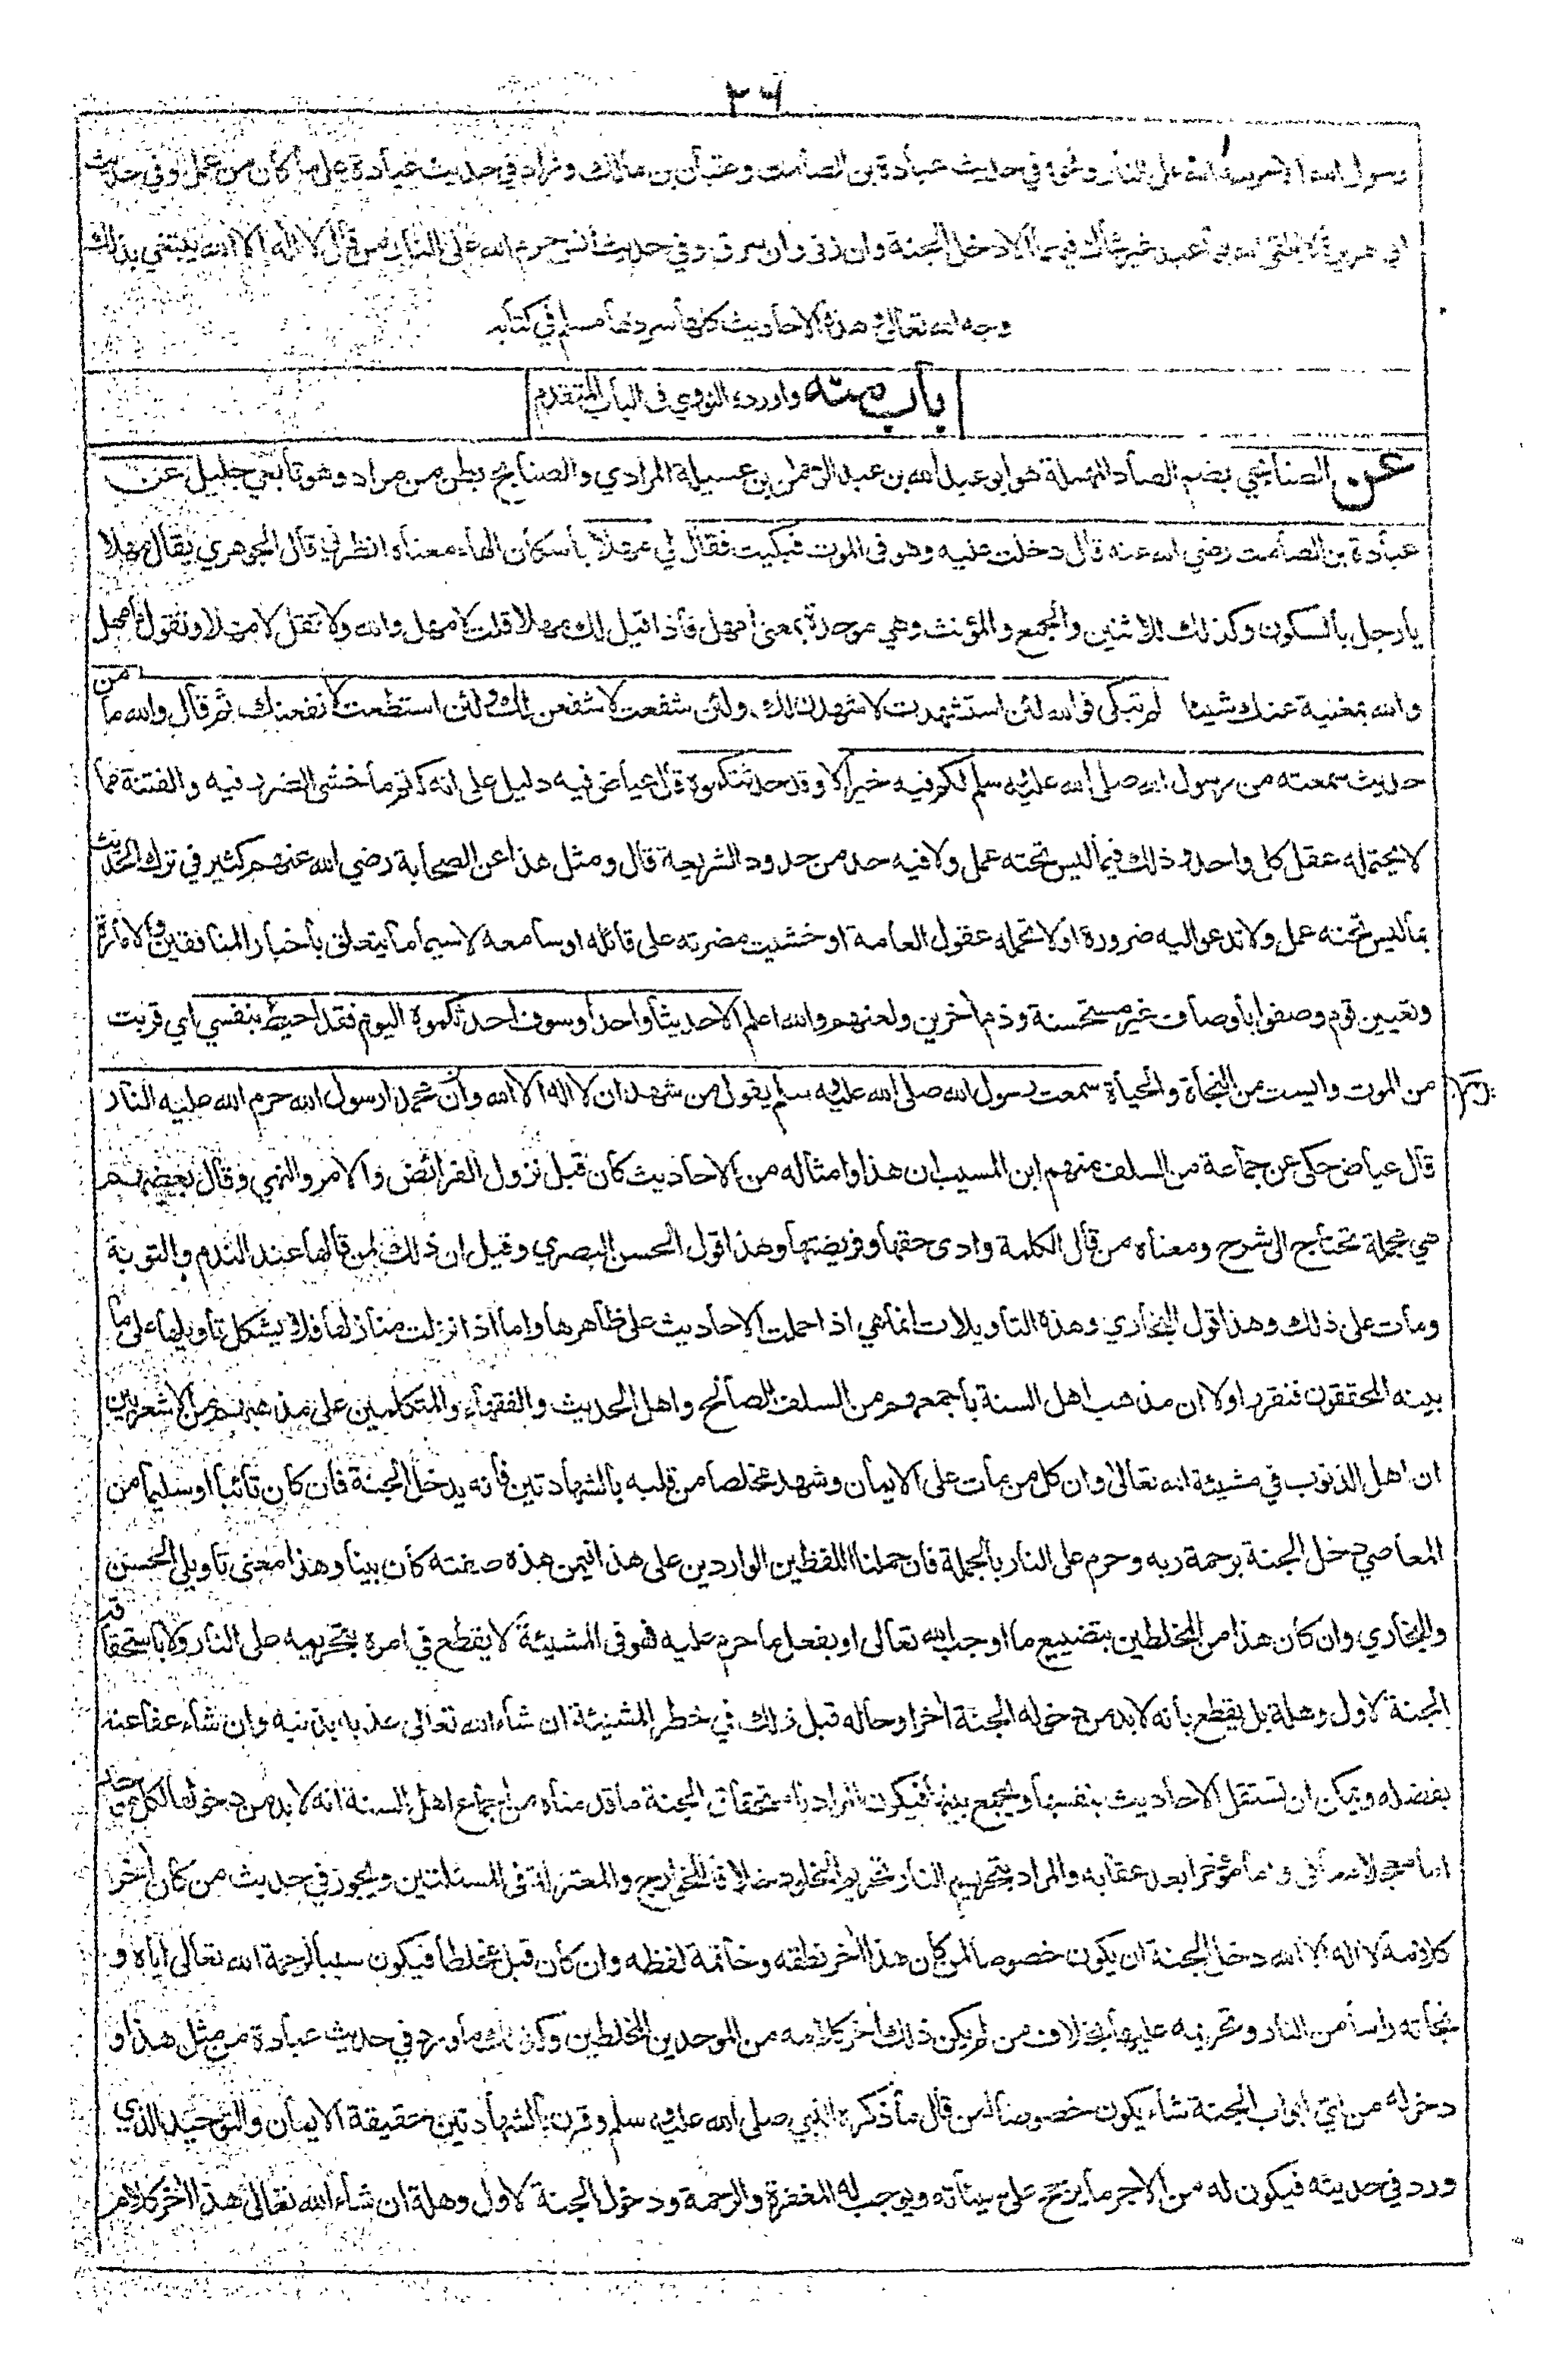 ٣٦
رسول الله الا حرمه الله على النار ونحوه في حديث عبادة بن الصامت وعتبان بن مالك وزاد في حديث عبادة على ما كان من عمل وفي حديث
ابي هريرة لا يلقى الله بهما عبد غير شاك فيهما الا دخل الجنة وان زنى وان سرق وفي حديث أنس حرم الله على النار من قال لا اله الا الله يبتغي بذلك
وجه الله تعالى هذه الاحاديث كلها سردها مسلم في كتابه
باب منه واورده النووي في الباب المتقدم
عن الصنابحي بضم الصاد المهملة هو ابو عبد الله بن عبد الرحمن بن عسيلة المرادي والصنابح بطن من مراد وهو تابعي جليل عن
عبادة بن الصامت رضي الله عنه قال دخلت عليه وهو في الموت فبكيت فقال لي مهلا بأسكان الهاء معناه انظرني قال الجوهري يقال مهلا
يا رجل بالسكون وكذلك للاثنين والجمع والمؤنث وهي موحدة بمعنى أمهل فأذا قيل لك مهلا قلت لا مهل والله ولا تقل لا مهلا وتقول ما مهل
والله بمغنية عنك شيئا لم تبكى فوالله لئن استشهدت لاشهدن لك ولئن شفعت لاشفعن لك ولئن استطعت لانفعنك ثم قال والله ما من
حديث سمعته من رسول الله صلى الله عليه سلم لكم فيه خير الا وقد حدثتكموه قال عياض فيه دليل على انه كتم ما خشى الضرر فيه والفتنة مما
لا يحتمله عقل كل واحد وذلك فيما ليس تحته عمل ولا فيه حد من حدود الشريعة قال ومثل هذا عن الصحابة رضي الله عنهم كثير في ترك الحديث
بما ليس تحته عمل ولا تدعو اليه ضرورة او لا تحمله عقول العامة او خشيت مضرته على قائله او سامعه لاسيما ما يتعلق بأخبار المنافقين والامارة
وتعيين قوم وصفوا بأوصاف غير مستحسنة وذم آخرين ولعنهم والله اعلم الا حديثا واحدا وسوف احدثكموه اليوم فقد احيط بنفسي اي قربت
من الموت وايست من النجاة والحياة سمعت رسول الله صلى الله عليه سلم يقول من شهد ان لا اله الا الله وان محمدا رسول الله حرم الله عليه النار
قال عياض حكى عن جماعة من السلف منهم ابن المسيب ان هذا وامثاله من الاحاديث كان قبل نزول الفرائض والامر والنهي وقال بعضهم
هي مجملة تحتاج الى شرح ومعناه من قال الكلمة وادى حقها وفريضتها وهذا قول الحسن البصري وقيل ان ذلك لمن قالها عند الندم والتوبة
ومات على ذلك وهذا قول البخاري وهذه التأويلات انما هي اذا حملت الاحاديث على ظاهرها واما اذا نزلت منازلها فلا يشكل تأويلها على ما
بينه المحققون فنقرر اولا ان مذهب اهل السنة بأجمعهم من السلف الصالح واهل الحديث والفقهاء والمتكلمين على مذهبهم من الاشعريين
ان اهل الذنوب في مشيئة الله تعالى وان كل من مات على الايمان وشهد مخلصا من قلبه بالشهادتين فأنه يدخل الجنة فأن كان تائبا او سليما من
المعاصي دخل الجنة برحمة ربه وحرم على النار بالجملة فان حملنا اللفظين الواردين على هذا فيمن هذه صفته كان بينا وهذا معنى تأويلي الحسن
والبخاري وان كان هذا من المخلطين بتضييع ما اوجب الله تعالى او بفعل ما حرم عليه فهو في المشيئة لا يقطع في امره بتحريمه على النار ولا باستحقاقه
الجنة لاول وهلة بل يقطع بأنه لابد من دخوله الجنة آخرا وحاله قبل ذلك في خطر المشيئة ان شاء الله تعالى عذبه بذنبه وان شاء عفا عنه
بفضله ويمكن ان تستقل الاحاديث بنفسها ويجمع بينها فيكون المراد باستحقاق الجنة ما قدمناه من اجماع اهل السنة انه لابد من دخولها لكل موحد
اما معجلا معافى واما مؤخرا بعد عقابه والمراد بتحريم النار تحريم الخلود خلافا للخوارج والمعتزلة في المسئلتين ويجوز في حديث من كان آخر
كلامه لا اله الا الله دخل الجنة ان يكون خصوصا لمن كان هذا آخر نطقه وخاتمة لفظه وان كان قبل مخلطا فيكون سببا لرحمة الله تعالى اياه و
نجاته راسا من النار وتحريمه عليها بخلاف من لم يكن ذلك آخر كلامه من الموحدين المخلطين وكذلك ما ورد في حديث عبادة من مثل هذا و
دخوله من اي ابواب الجنة شاء يكون خصوصا لمن قال ما ذكره النبي صلى الله عليه سلم وقرن بالشهادتين حقيقة الايمان والتوحيد الذي
ورد في حديثه فيكون له من الاجر ما يرجح على سيئاته ويوجب له المغفرة والرحمة ودخول الجنة لاول وهلة ان شاء الله تعالى هذا آخر كلام